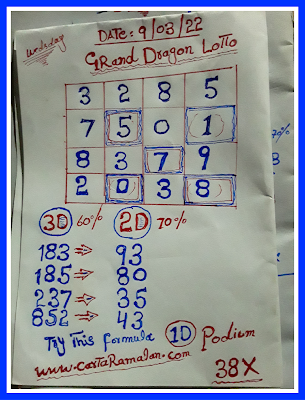 Wedsday
DATE: 9/03/22
Grand Dragon Lotto
3 2 8 5
7 5 0 1
8 3 7 9
2 0 3 8
3D 60% 2D 70%
183 ⇒ 93
185 ⇒ 80
237 ⇒ 35
852 ⇒ 43
Try This formula 1D Podium
www.cartaRamalan.com
38X
70%